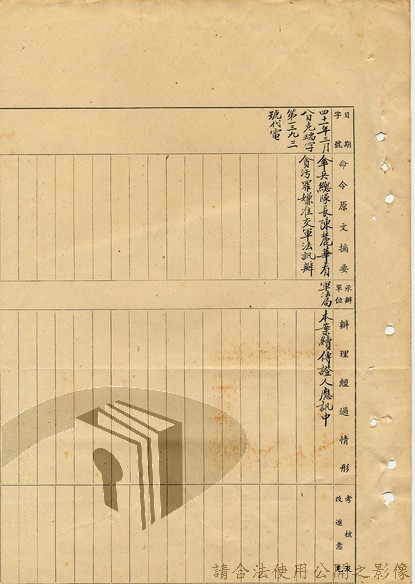 日期
字號
命令原文摘要
承辦單位
辦理經過情形
考核
改進意見
四十一年三月
八日克瑞字
第一三九三
號代電
傘兵總隊長陳麓華有
貪污罪嫌准交軍法訊辦
軍法局
本案續傳證人應訊中
請合法使用公開之影像